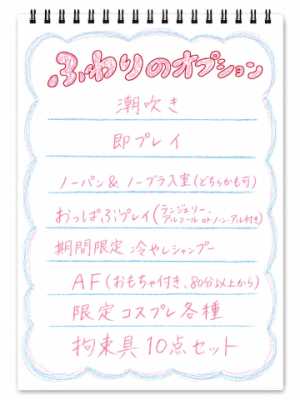 ふわりのオプション
潮吹き
即プレイ
ノーパン&ノーブラ入室(どちらかも可)
おっぱぶプレイ(ランジェリー、アルコールorノンアル付き)
期間限定 冷やしシャンプー
AF(おもちゃ付き、80分以上から)
限定コスプレ各種
拘束具10点セット